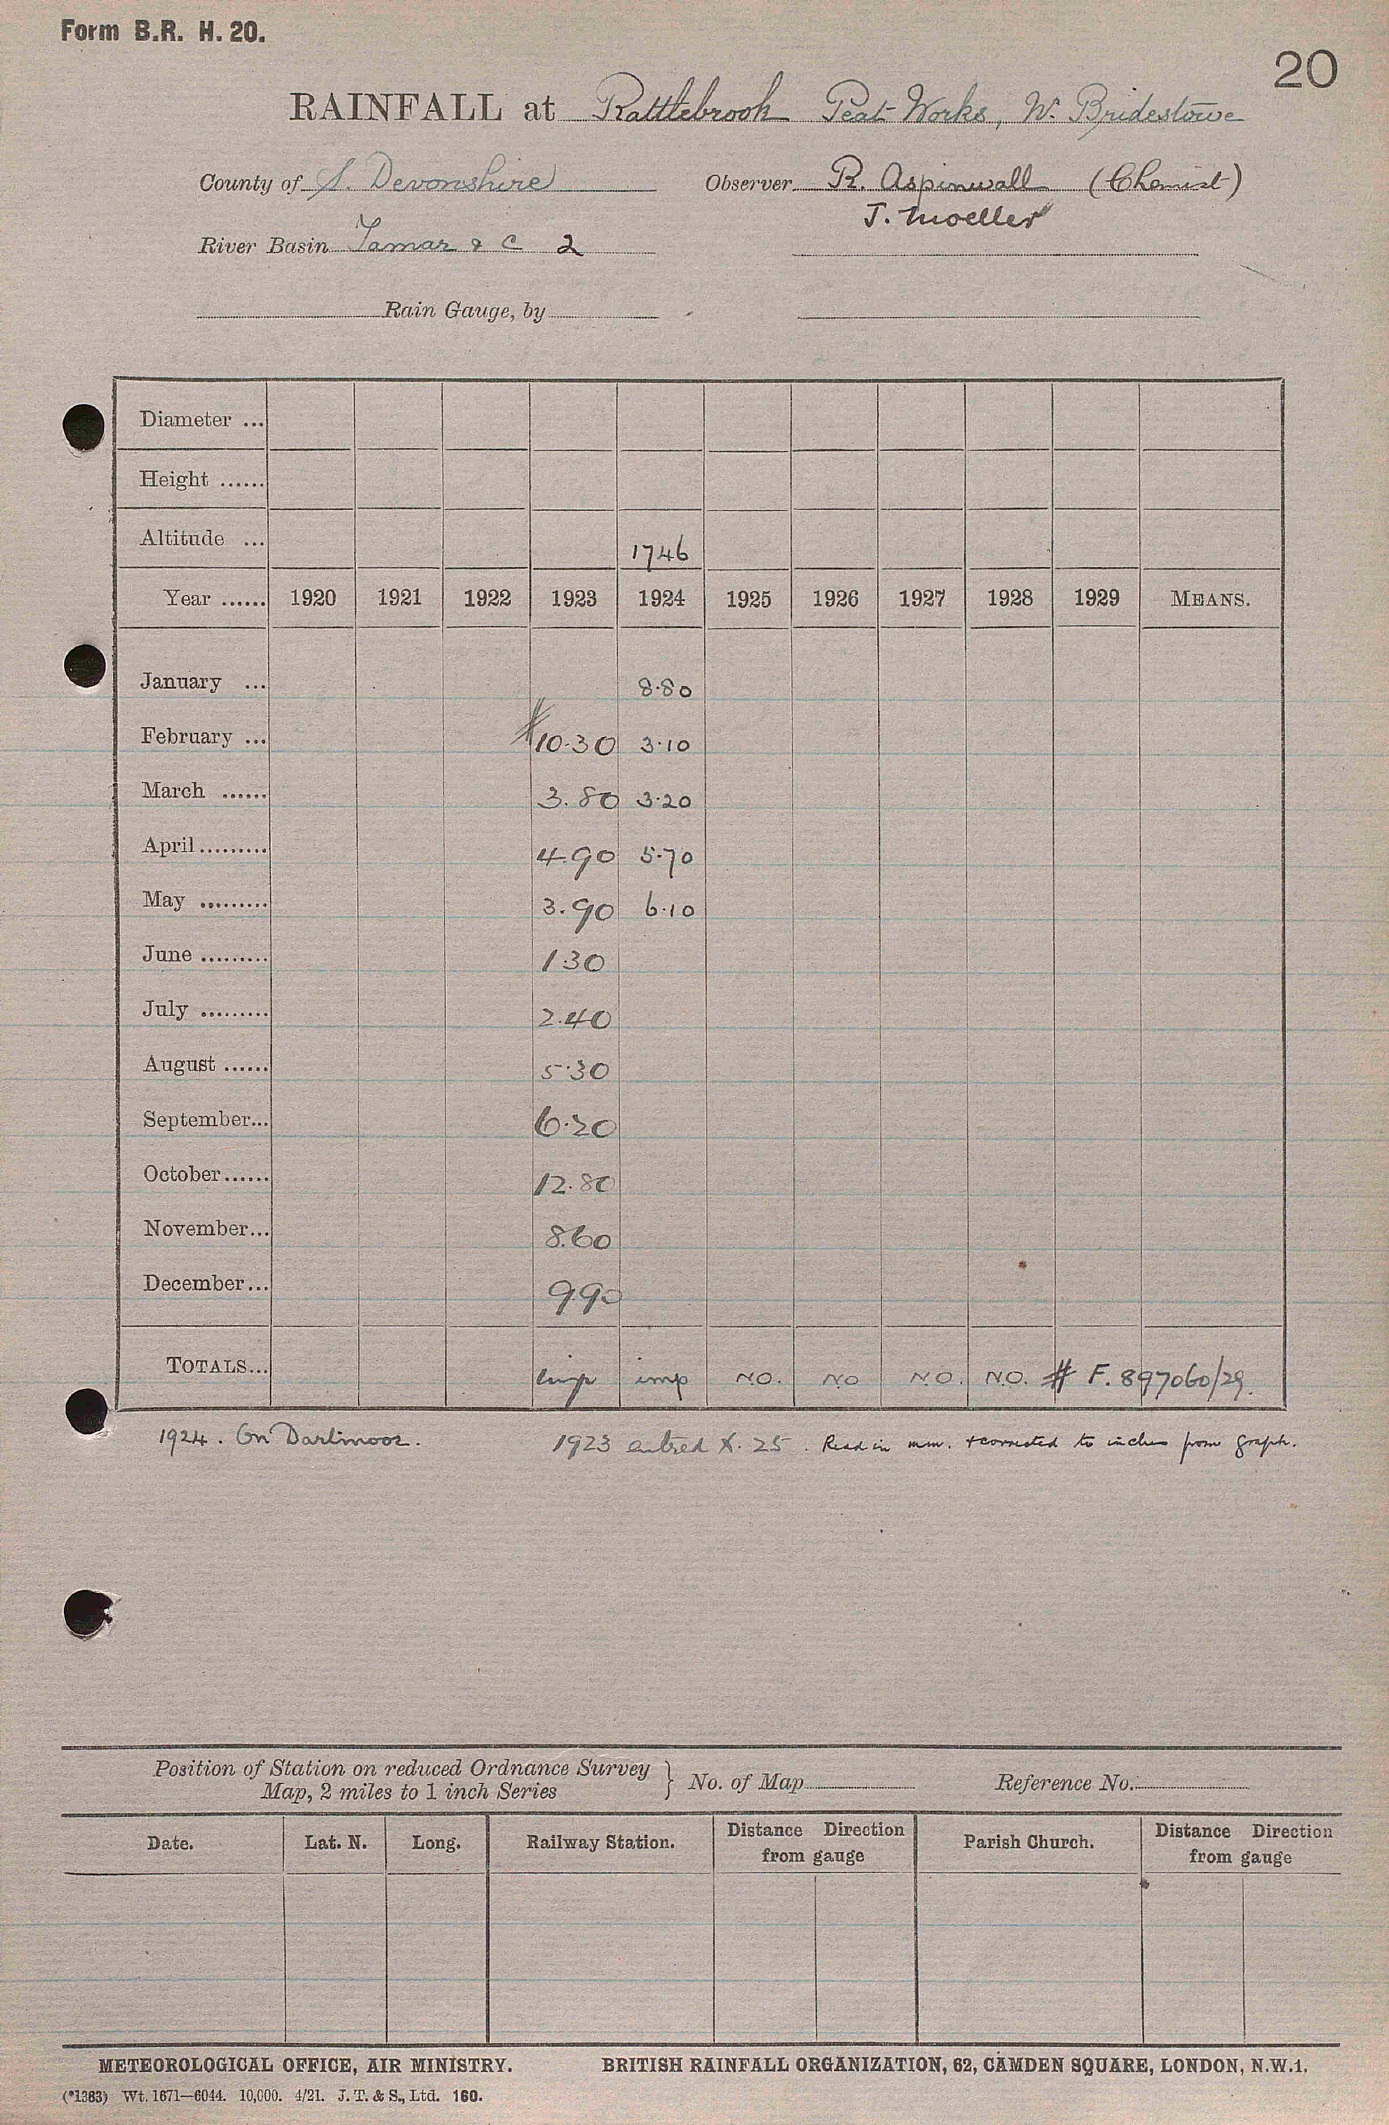 Form B.R. H. 20.
20
RAINFALL at Rattlebrook Peat Works, Nr. Bridestowe
County of S. Devonshire Observer R. Aspinwall (Chemist)
J. Moeller
River Basin Tamar & C 2
Rain Gauge, by
Diameter ...
Height ......
Altitude ... 1746
Year ...... 1920 1921 1922 1923 1924 1925 1926 1927 1928 1929 MEANS.
January ... 8.80
February ... # 10.30 3.10
March ...... 3.80 3.20
April ......... 4.90 5.70
May ......... 3.90 6.10
June ......... 1.30
July ......... 2.40
August ...... 5.30
September... 6.20
October...... 12.80
November... 8.60
December... 9.90
TOTALS... imp imp N.O. NO N.O. N.O. # F. 897060/29.
1924. On Dartmoor. 1923 entred X. 25. Read in mm. & corrected to inches from graph.
Position of Station on reduced Ordnance Survey
Map, 2 miles to 1 inch Series } No. of Map Reference No.
Date. Lat. N. Long. Railway Station. Distance Direction from gauge Parish Church. Distance Direction from gauge
METEOROLOGICAL OFFICE, AIR MINISTRY. BRITISH RAINFALL ORGANIZATION, 62, CAMDEN SQUARE, LONDON, N.W.1.
(*1363) Wt. 1671—6044. 10,000. 4/21. J. T. & S., Ltd. 160.